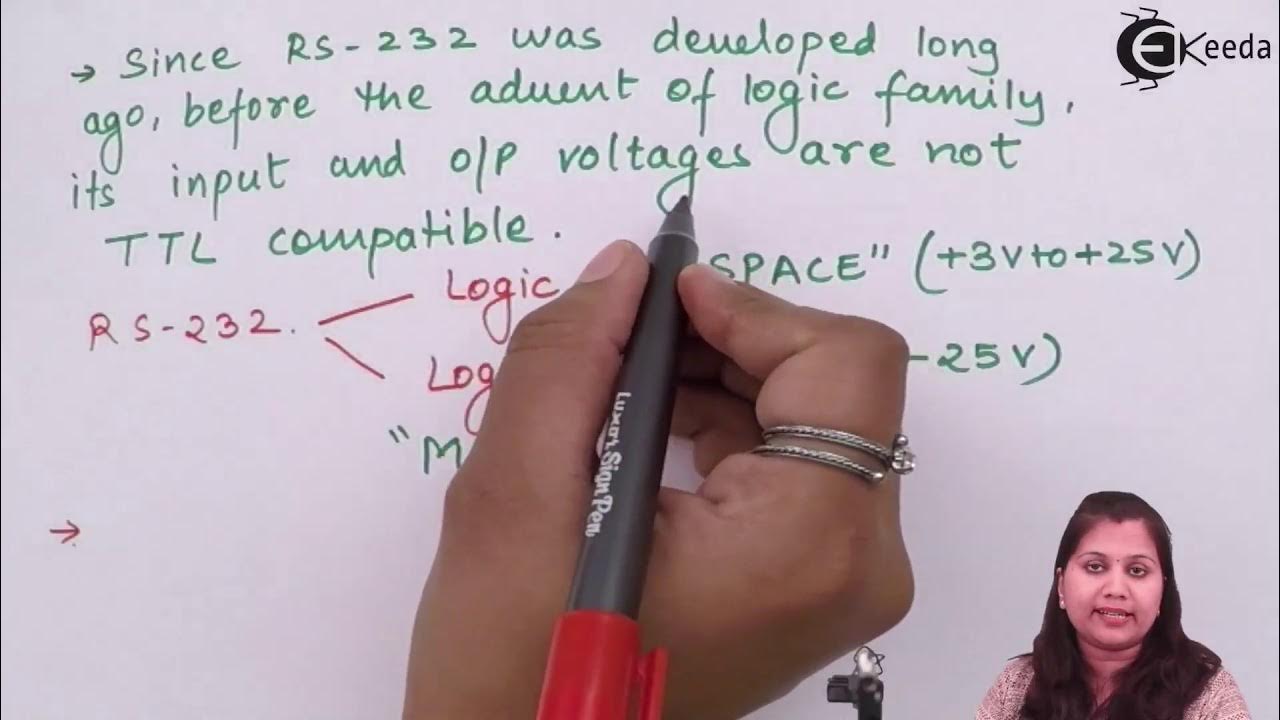 → Since RS-232 was developed long
ago, before the advent of logic family,
its input and O/P voltages are not
TTL compatible.
RS-232.
Logic
SPACE" (+3V to +25V)
-25V)
→
Luxor Sign Pen
EKeeda